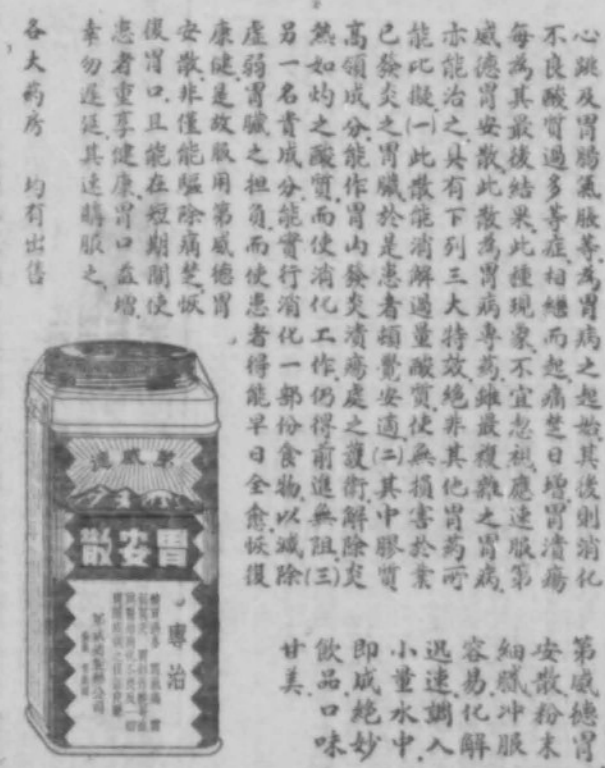 心跳及胃腸氣脹等為胃病之起始其後則消化
不良酸質過多等症相繼而起痛楚日增胃潰瘍
每為其最後結果此種現象不宜忽視應速服第
威德胃安散此散為胃病專药雖最複雜之胃病
亦能治之具有下列三大特效絕非其他胃药所
能比擬(一)此散能消解過量酸質使無損害於業
已發炎之胃臟於是患者頓覺安適(二)其中膠質
高領成分能作胃內發炎潰瘍處之護衛解除炎
熱如灼之酸質而使消化工作仍得前進無阻(三)
另一名貴成分能實行消化一部份食物以減除
虛弱胃臟之担負而使患者得能早日全愈恢復
康健是故服用第威德胃
安散非僅能驅除痛楚恢
復胃口且能在短期間使
患者重享健康胃口益增
幸勿遲延其速購服之
各大药房 均有出售
第威德胃
安散粉末
細膩冲服
容易化解
迅速調入
小量水中
即成絕妙
飲品口味
甘美
第威德
胃安散
專治